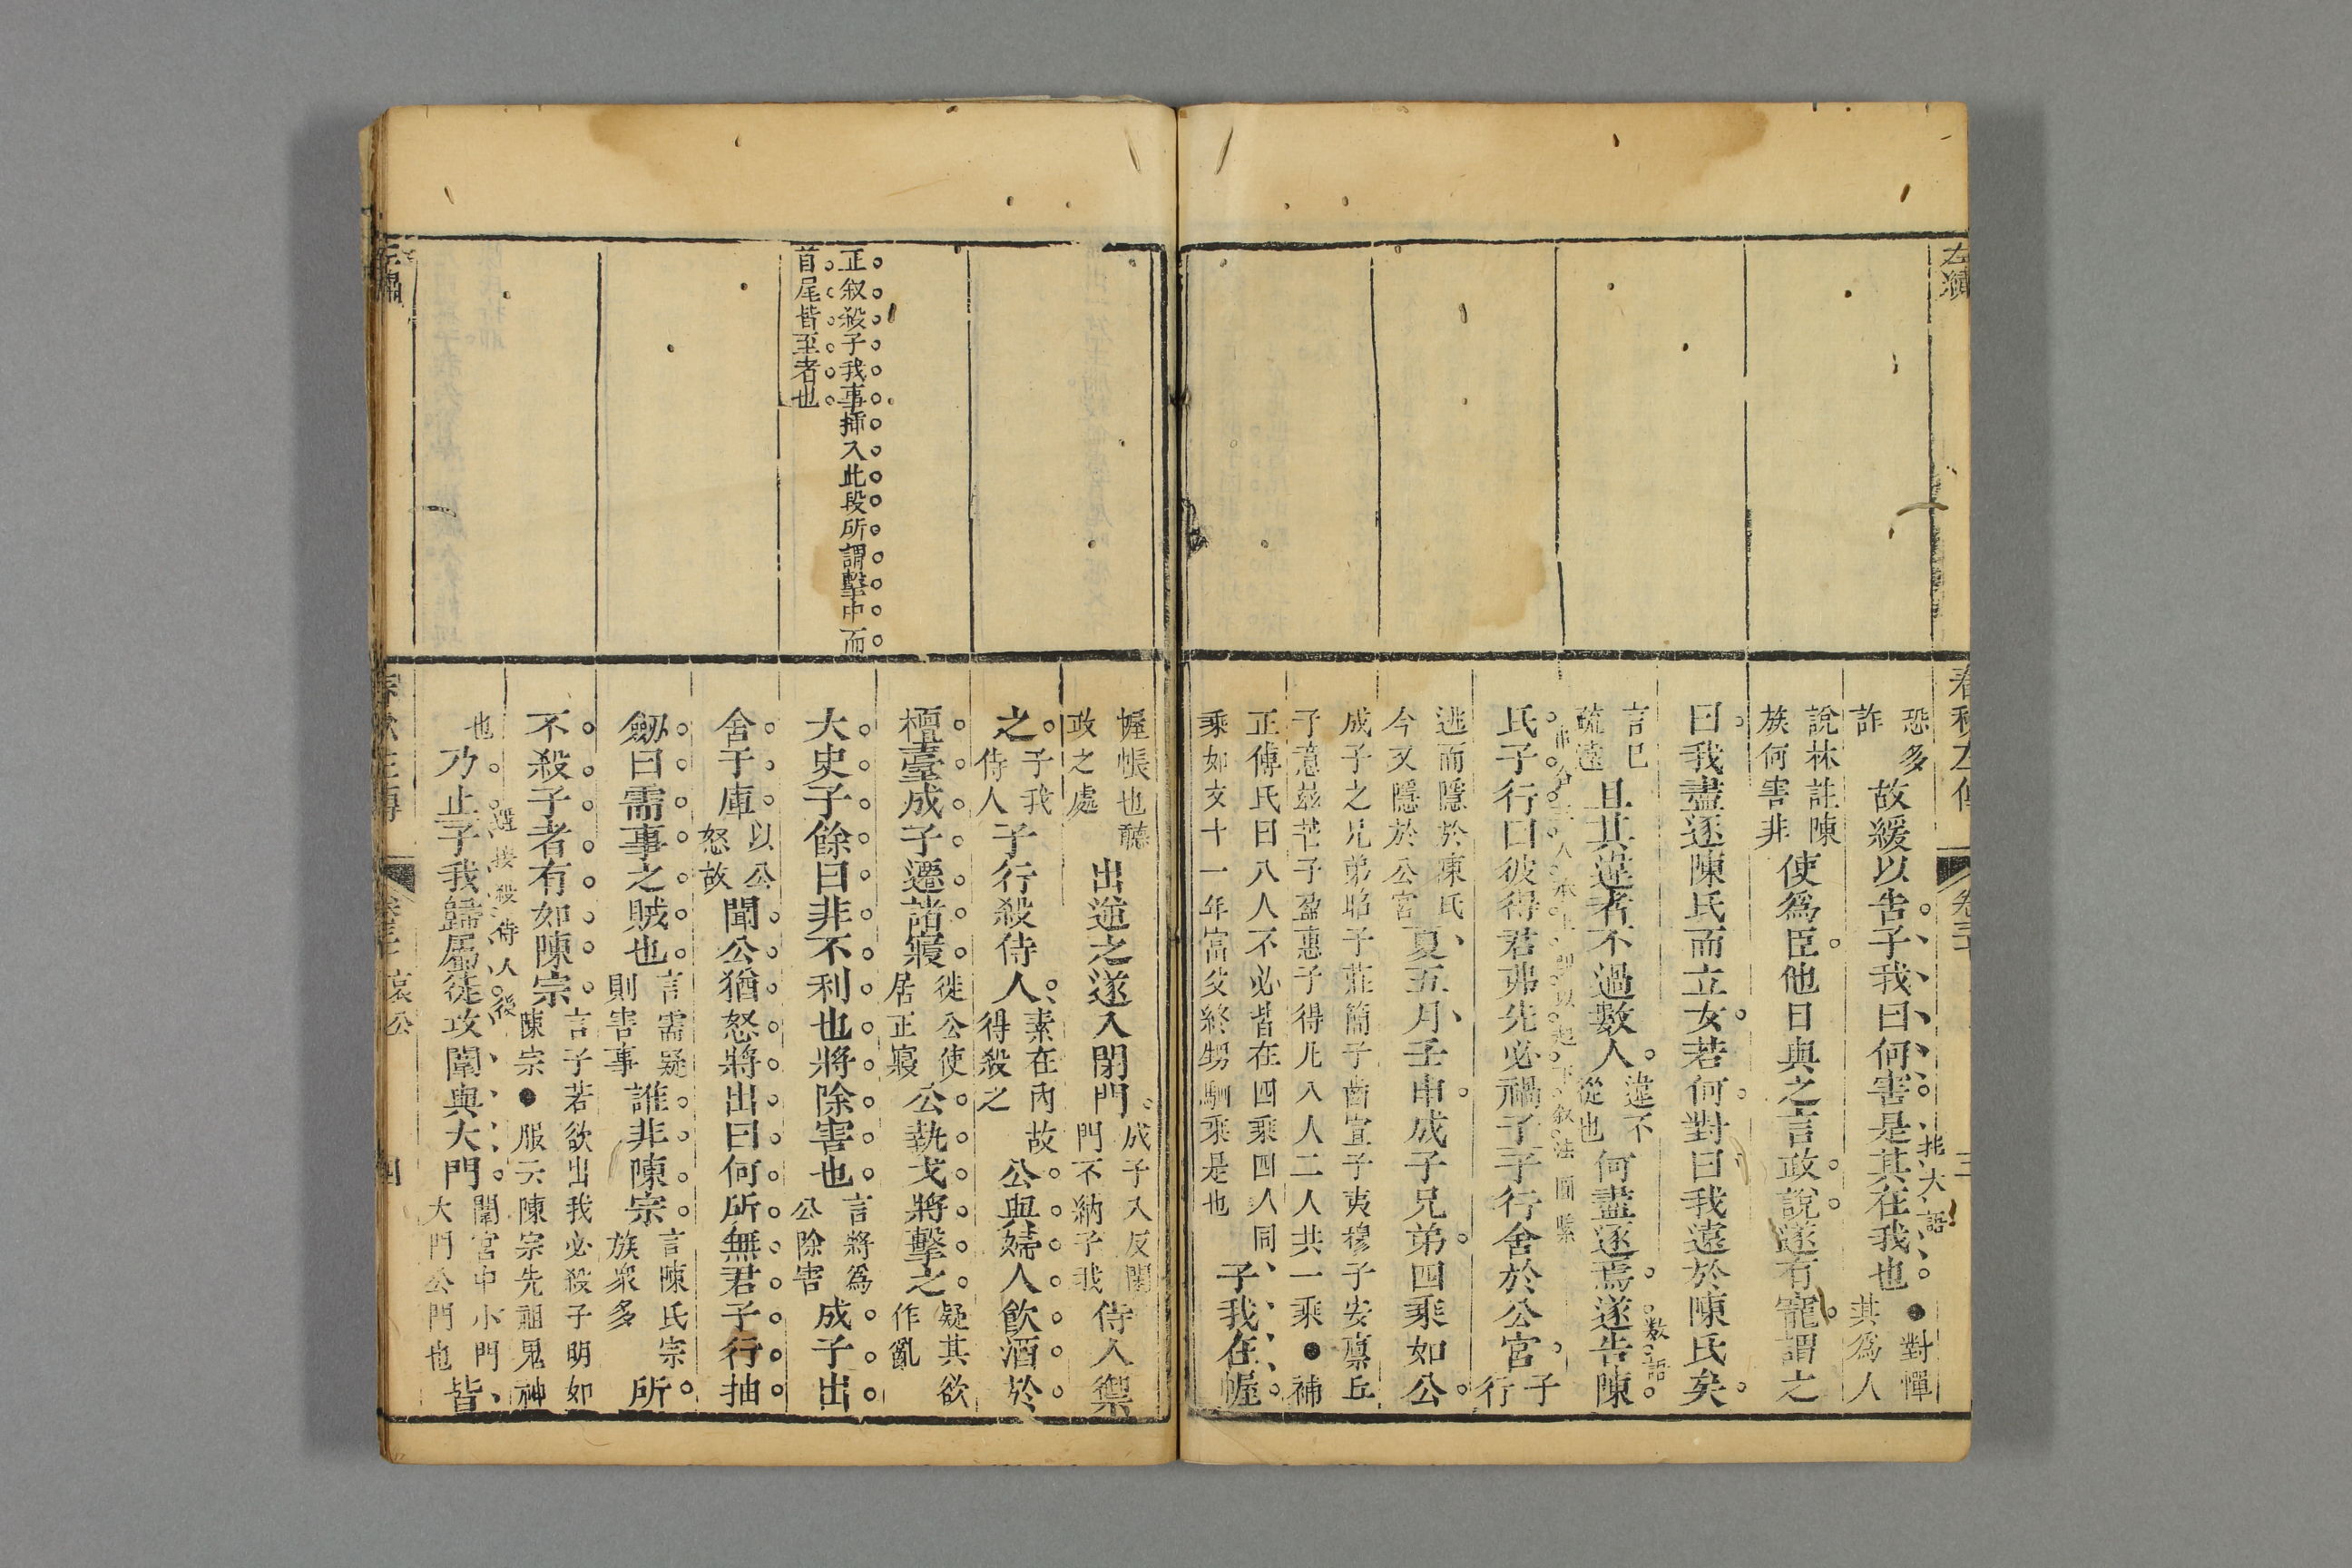 左繡
春秋左傳 卷三十 三
恐多詐故緩以告子我曰何害是其在我也●對憚其為人
大語
說林註陳族何害非使為臣他日與之言政說遂有寵謂之
曰我盡逐陳氏而立女若何對曰我遠於陳氏矣
言已疏遠且其違者不過數人違不從也何盡逐焉遂告陳
數語
氏子行曰彼得君弗先必禍子子行舍於公宮子行
逃而隱於陳氏今又隱於公宮夏五月壬申成子兄弟四乘如公
成子之兄弟昭子莊簡子齒宣子夷穆子安廩丘子意茲芒子盈惠子得凡八人二人共一乘●補
正傅氏曰八人不必皆在四乘四人同乘如文十一年富父終甥駟乘是也子我在幄
正叙殺子我事揷入此段所謂擊中而
首尾皆至者也
幄帳也聽政之處出逆之遂入閉門成子入反閉門不納子我侍人禦
之子我侍人子行殺侍人素在內故得殺之公與婦人飲酒於
檀臺成子遷諸寢徙公使居正寢公執戈將擊之疑其欲作亂
大史子餘曰非不利也將除害也言將為公除害成子出
舍于庫以公怒故聞公猶怒將出曰何所無君子行抽
劒曰需事之賊也言需疑則害事誰非陳宗言陳氏宗族衆多所
不殺子者有如陳宗言子若欲出我必殺子明如陳宗●服云陳宗先祖鬼神
遥接殺侍人後
也乃止子我歸屬徒攻闈與大門闈宮中小門大門公門也皆
左繡
春秋左傳 卷三十 哀公 四